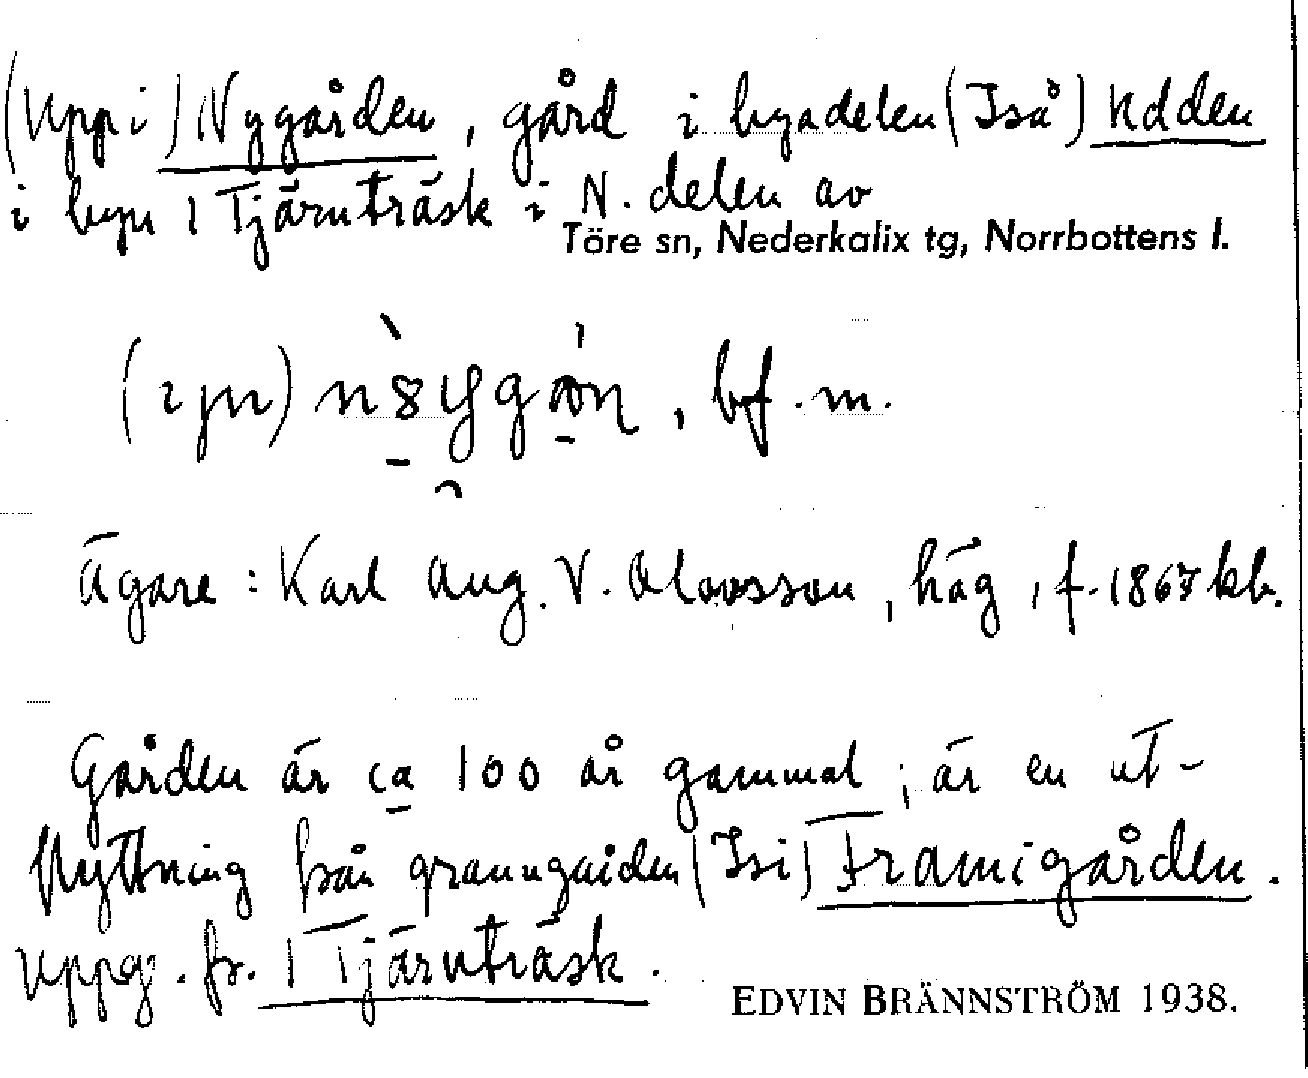 (Uppi) Nygården, gård i byadelen (Iså) Udden
i byn 1 Tjärnträsk i N. delen av
Töre sn, Nederkalix tg, Norrbottens l.
bf. m.
Ägare: Karl Aug. V. Olovsson, häg, f. 1867 kb.
Gården är ca 100 år gammal; är en ut-
flyttning från granngården (Isi) Framigården.
Uppg. fr. 1 Tjärnträsk.
EDVIN BRÄNNSTRÖM 1938.